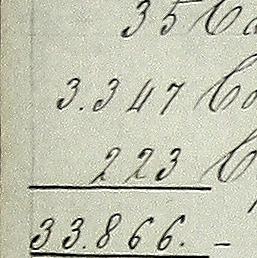 35
3.347
223
33.866. -